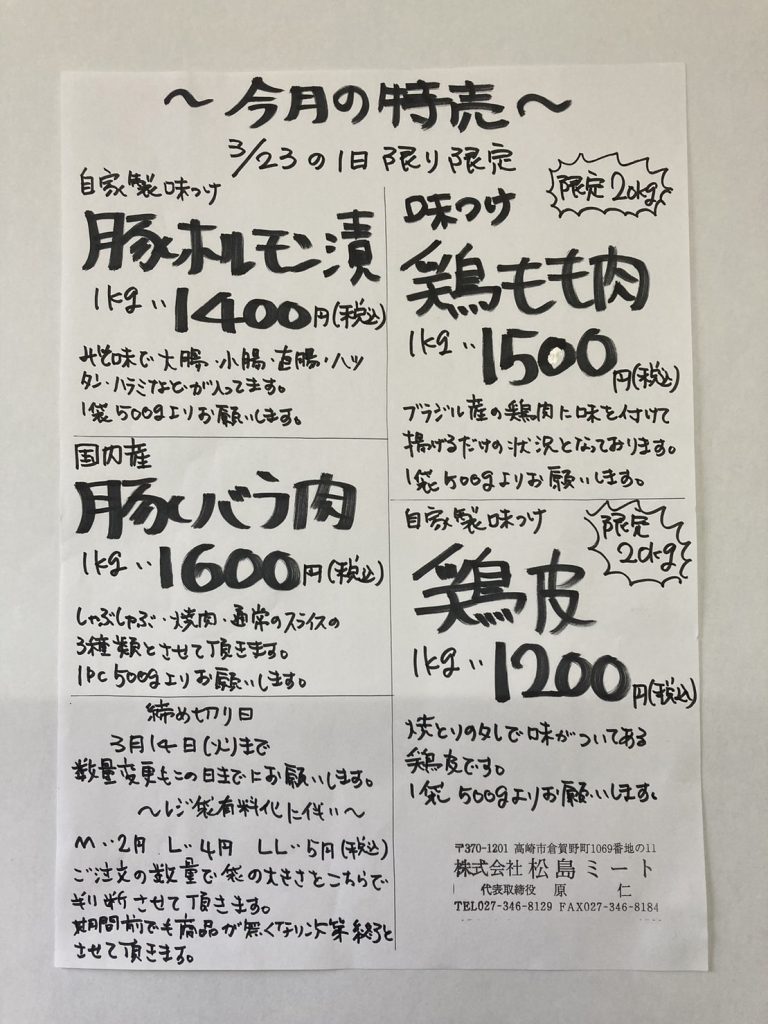 ～今月の特売～
3/23の1日限り限定
自家製味つけ
豚ホルモン漬
1kg‥1400円(税込)
みそ味で大腸・小腸・直腸・ハツ
タン・ハラミなどが入ってます。
1袋500gよりお願いします。
国内産
豚バラ肉
1kg‥1600円(税込)
しゃぶしゃぶ・焼肉・通常のスライスの
3種類とさせて頂きます。
1PC500gよりお願いします。
締め切り日
3月14日(火)まで
数量変更もこの日までにお願いします。
～レジ袋有料化に伴い～
M‥2円 L‥4円 LL‥5円(税込)
ご注文の数量で袋の大きさをこちらで
判断させて頂きます。
期間前でも商品が無くなり次第終了と
させて頂きます。
限定20kg
味つけ
鶏もも肉
1kg‥1500円(税込)
ブラジル産の鶏肉に味を付けて
揚げるだけの状況となっております。
1袋500gよりお願いします。
自家製味つけ
限定
20kg
鶏皮
1kg‥1200円(税込)
焼とりのタレで味がついてある
鶏皮です。
1袋500gよりお願いします。
〒370-1201 高崎市倉賀野町1069番地の11
株式会社 松島ミート
代表取締役 原 仁
TEL027-346-8129 FAX027-346-8184